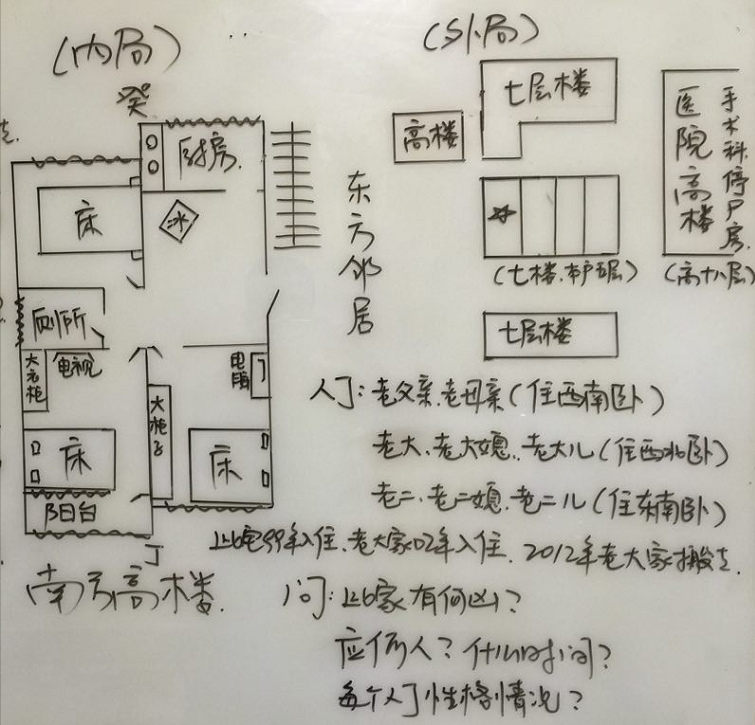 (内局)
癸
厨房
床
冰
厕所
大衣柜
电视
电脑
大柜子
床
床
阳台
丁
南方高楼
东方邻居
(外局)
七层楼
高楼
(七楼.本户五层)
七层楼
医院高楼
手术科停尸房
(高十八层)
人丁:老父亲.老母亲(住西南卧)
老大.老大媳.老大儿(住西北卧)
老二.老二媳.老二儿(住东南卧)
此宅99年入住.老大家02年入住.2012年老大家搬走.
问:此家有何凶?
应何人?什么时间?
每个人丁性格情况?